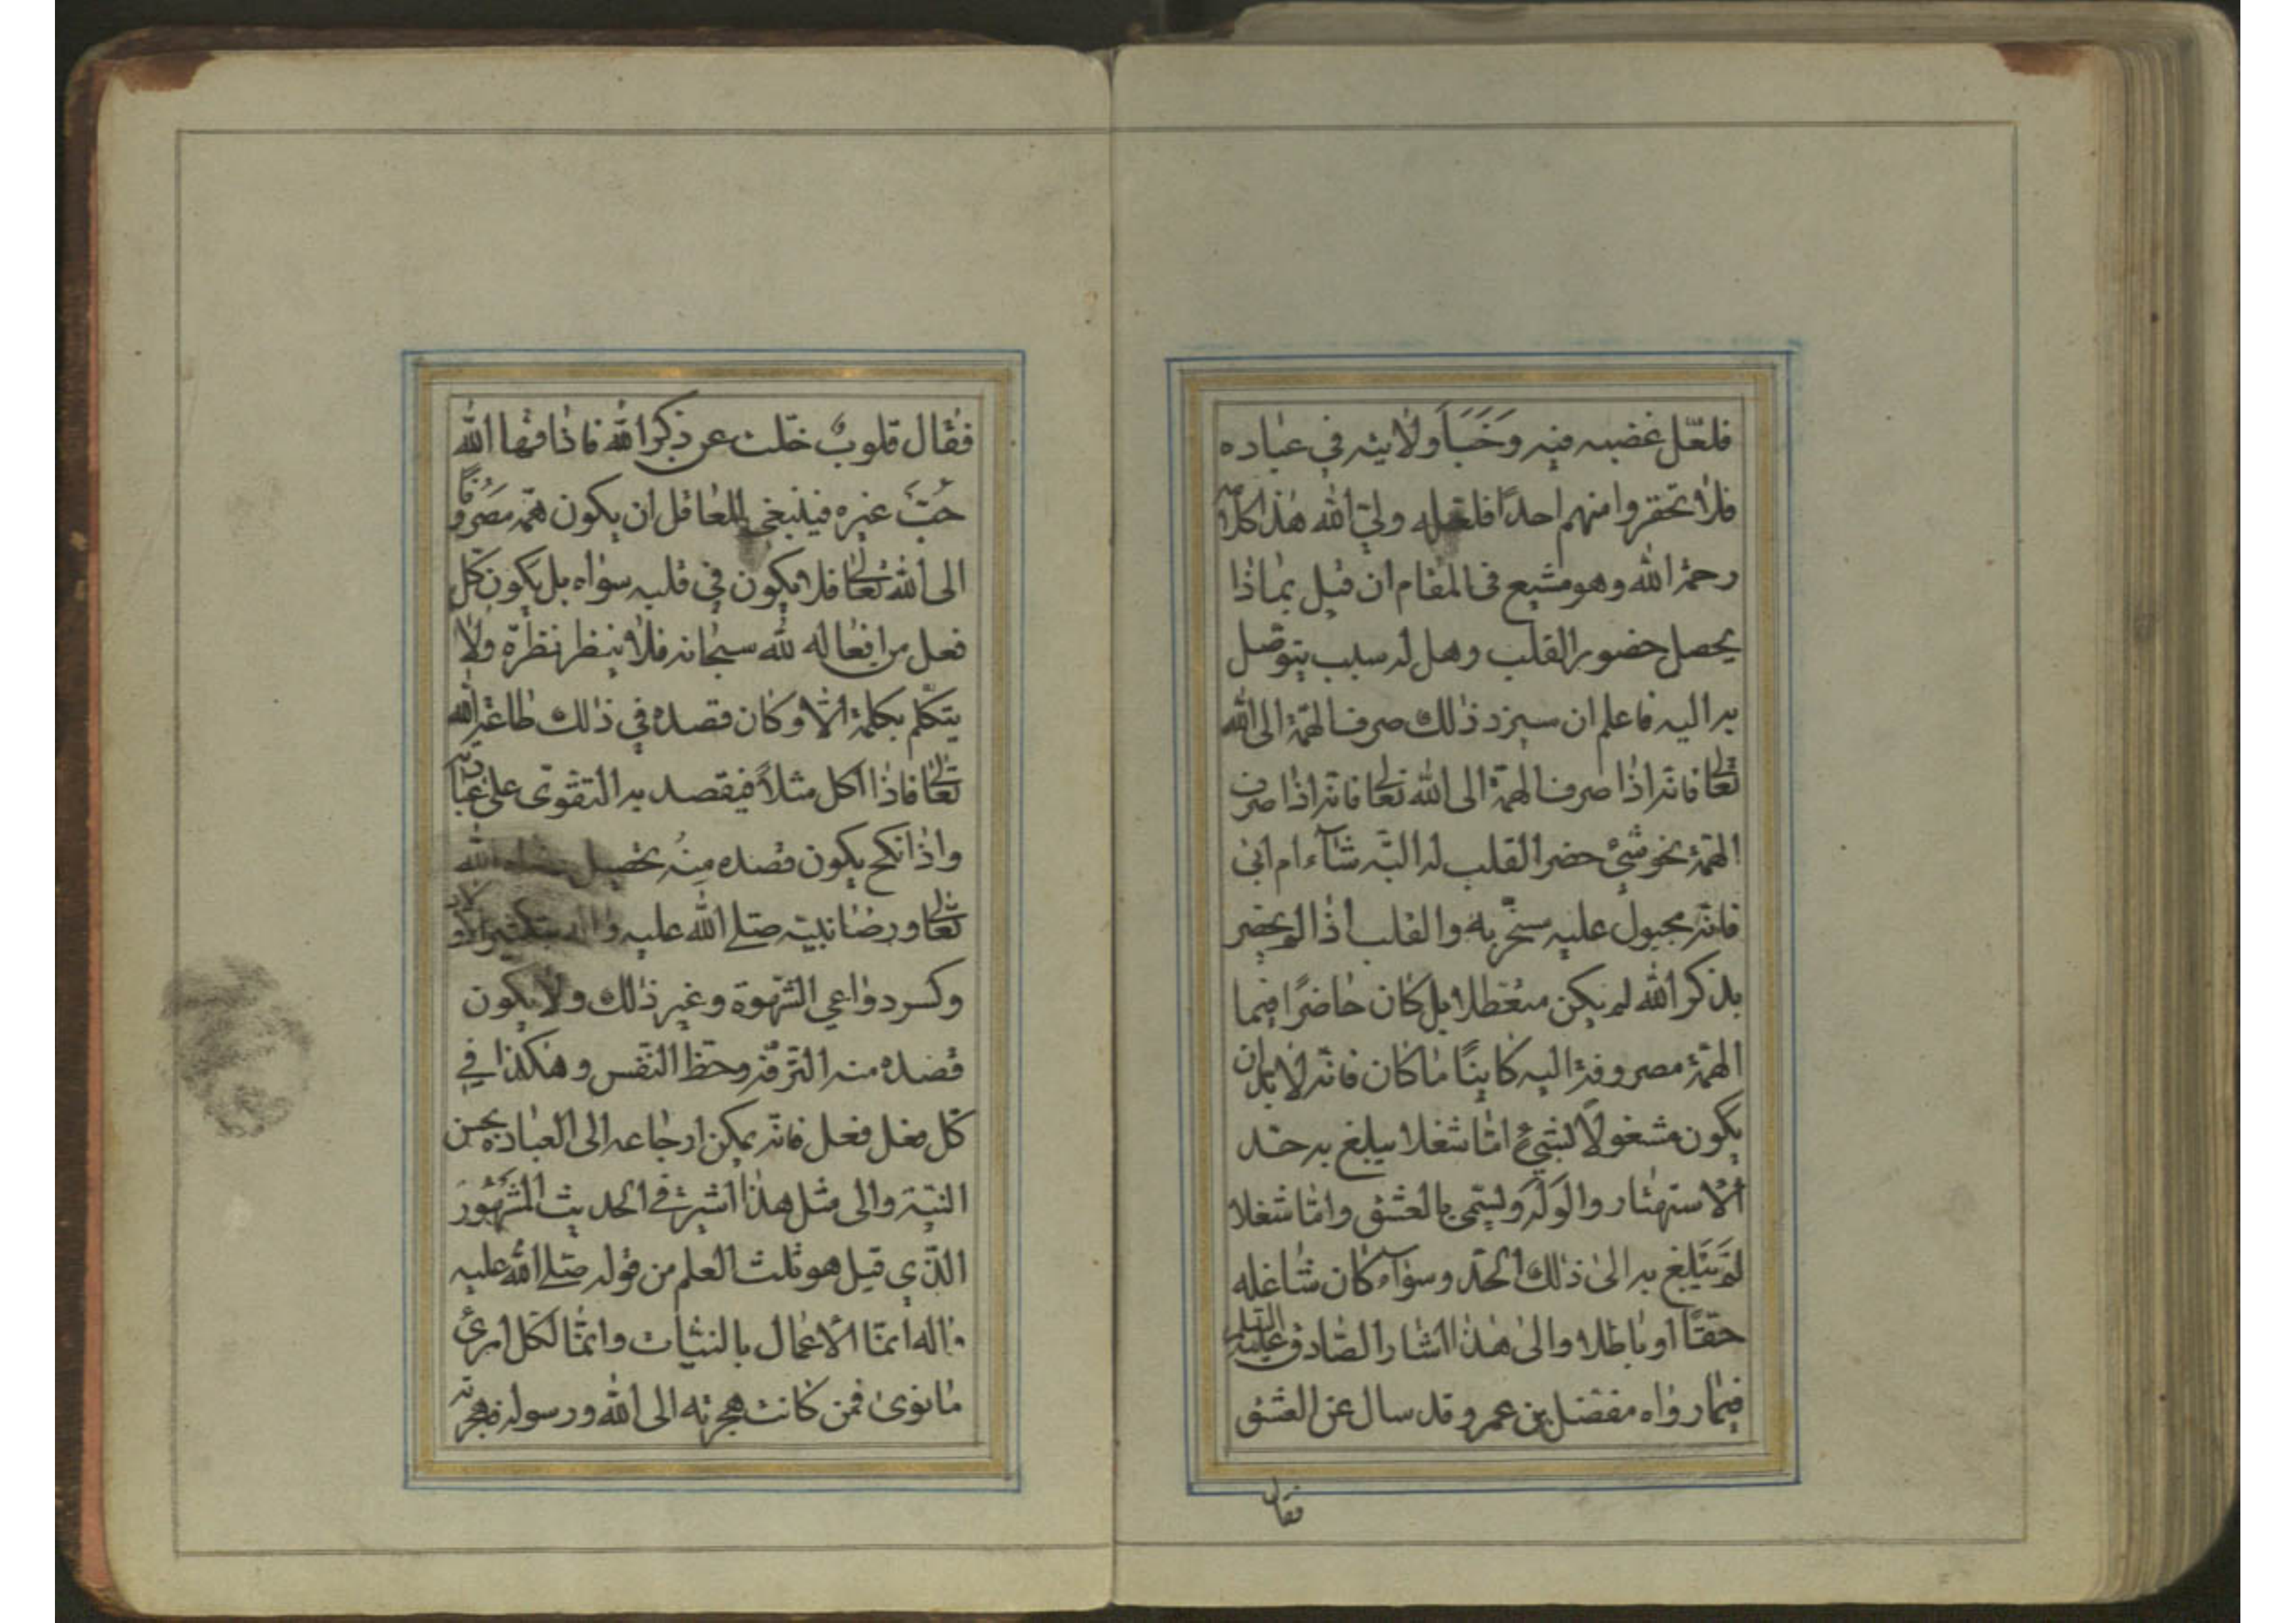 فلعّل غضبه فيه وَخَبَأَ ولايته في عباده
فلا تحقروا منهم احدًا فلعله وليّ الله هذا كلا
رحمة الله وهو مشبع في المقام ان قيل بماذا
يحصل حضور القلب وهل له سبب يتوصّل
به اليه فاعلم ان سبب ذلك صرف الهمّة الى الله
تعالى فانّه اذا صرف الهمّة الى الله تعالى فانّه اذا صرف
الهمّة نحو شيئ حضر القلب له البتّه شآء ام ابى
فانّه مجبول عليه سخّر به والقلب اذا لم يحضر
بذكر الله لم يكن متعطلا بل كان حاضرًا فيما
الهمّة مصروفة اليه كاينًا ما كان فانّه لا بد ان
يكون مشغولًا بشيئ امّا شغلا يبلغ به حدّ
الاستهتار والوَلَه وليتمى بالعشق وامّا شغلا
لم يَبلغ به الى ذلك الحدّ وسوآء كان شاغله
حقّتًا او باطلا والى هذا اشار الصّادق عليه السّلام
فيما رواه مفضل بن عمر وقد سال عن العشق
فقال
فقال قلوبٌ خلت عن ذكر الله فاذاقها الله
حُبَّ غيره فينبغي للعاقل ان يكون همّه مصروفًا
الى الله تعالى فلا يكون في قلبه سواه بل يكون كلّ
فعل من افعاله لله سبحانه فلا ينظر نظرة ولا
يتكلّم بكلمة الّا وكان قصده في ذلك طاعة الله
تعالى فاذا اكل مثلاً فيقصد به التقوّى على عبادته
واذا نكح يكون قصده منه تحصيل رضاء الله
تعالى ورضا نبيّه صلى الله عليه واله بتكثير الاولاد
وكسر دواعي الشّهوة وغير ذلك ولا يكون
قصده منه الترفّه وحظ النّفس وهكذا في
كل فعل فعل فانّه يمكن ارجاعه الى العباده بحسن
النيّة والى مثل هذا اشير في الحديث المشهور
الذّي قيل هو ثلث العلم من قوله صلى الله عليه
واله انمّا الاعمال بالنيّات وانمّا لكل امرئ
ما نوى فمن كانت هجرته الى الله ورسوله فهجرته